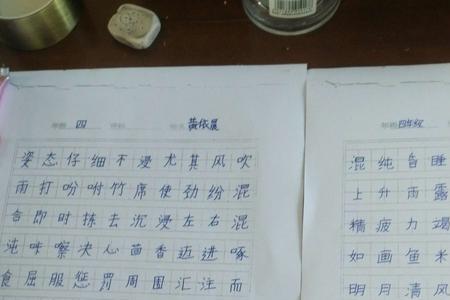 四 黄依晨
姿态仔细不漫尤其风吹
雨打吩咐竹席使劲纷混
告即时拣去沉浸左右混
沌咔嚓决心茴香迈进啄
食屈服惩罚周围汇注而
年级 四年级
混纯旨睡
上升雨露
精疲力竭
如画鱼米
明月清风